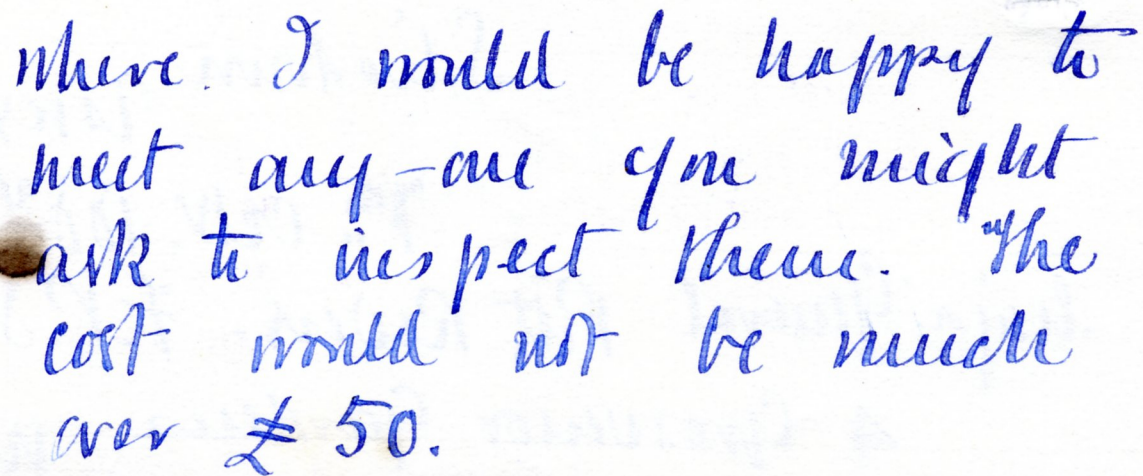 where. I would be happy to
meet any-one you might
ask to inspect them. The
cost would not be much
over £50.